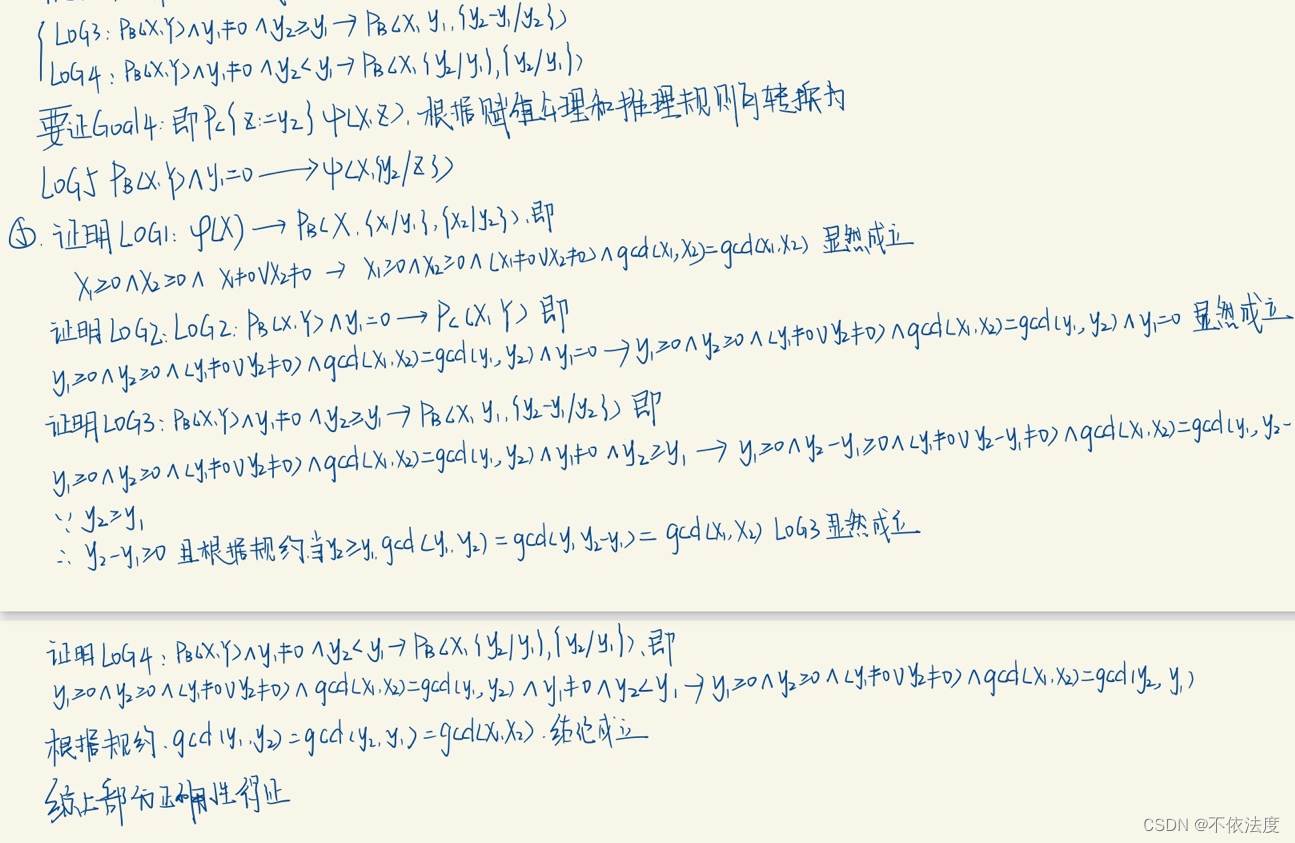 LOG3: PB(X,Y)∧y₁≠0∧y₂≥y₁→PB(X,y₁,{y₂-y₁/y₂})
LOG4: PB(X,Y)∧y₁≠0∧y₂<y₁→PB(X,{y₂/y₁},{y₂/y₁})
要证Goal4:即Pc{z:=y₂}ψ(X,Z),根据赋值公理和推理规则可转换为
LOG5 PB(X,Y)∧y₁=0→ψ(X,{y₂/Z})
⑤.证明LOG1: φ(X)→PB(X,{x₁/y₁},{x₂/y₂}),即
x₁≥0∧x₂≥0∧x₁≠0∨x₂≠0→x₁≥0∧x₂≥0∧(x₁≠0∨x₂≠0)∧gcd(x₁,x₂)=gcd(x₁,x₂) 显然成立
证明LOG2:LOG2: PB(X,Y)∧y₁=0→Pc(X,Y) 即
y₁≥0∧y₂≥0∧(y₁≠0∪y₂≠0)∧gcd(x₁,x₂)=gcd(y₁,y₂)∧y₁=0→y₁≥0∧y₂≥0∧(y₁≠0∪y₂≠0)∧gcd(x₁,x₂)=gcd(y₁,y₂)∧y₁=0 显然成立
证明LOG3: PB(X,Y)∧y₁≠0∧y₂≥y₁→PB(X,y₁,{y₂-y₁/y₂}) 即
y₁≥0∧y₂≥0∧(y₁≠0∪y₂≠0)∧gcd(x₁,x₂)=gcd(y₁,y₂)∧y₁≠0∧y₂≥y₁→y₁≥0∧y₂-y₁≥0∧(y₁≠0∪y₂-y₁≠0)∧gcd(x₁,x₂)=gcd(y₁,y₂-
∵ y₂≥y₁
∴ y₂-y₁≥0 且根据规约,当y₂≥y₁,gcd(y₁,y₂)=gcd(y₁,y₂-y₁)=gcd(x₁,x₂) LOG3显然成立
证明LOG4: PB(X,Y)∧y₁≠0∧y₂<y₁→PB(X,{y₂/y₁},{y₂/y₁}),即
y₁≥0∧y₂≥0∧(y₁≠0∪y₂≠0)∧gcd(x₁,x₂)=gcd(y₁,y₂)∧y₁≠0∧y₂<y₁→y₁≥0∧y₂≥0∧(y₁≠0∪y₂≠0)∧gcd(x₁,x₂)=gcd(y₂,y₁)
根据规约,gcd(y₁,y₂)=gcd(y₂,y₁)=gcd(x₁,x₂).结论成立
综上部分正确性得证
CSDN @不依法度